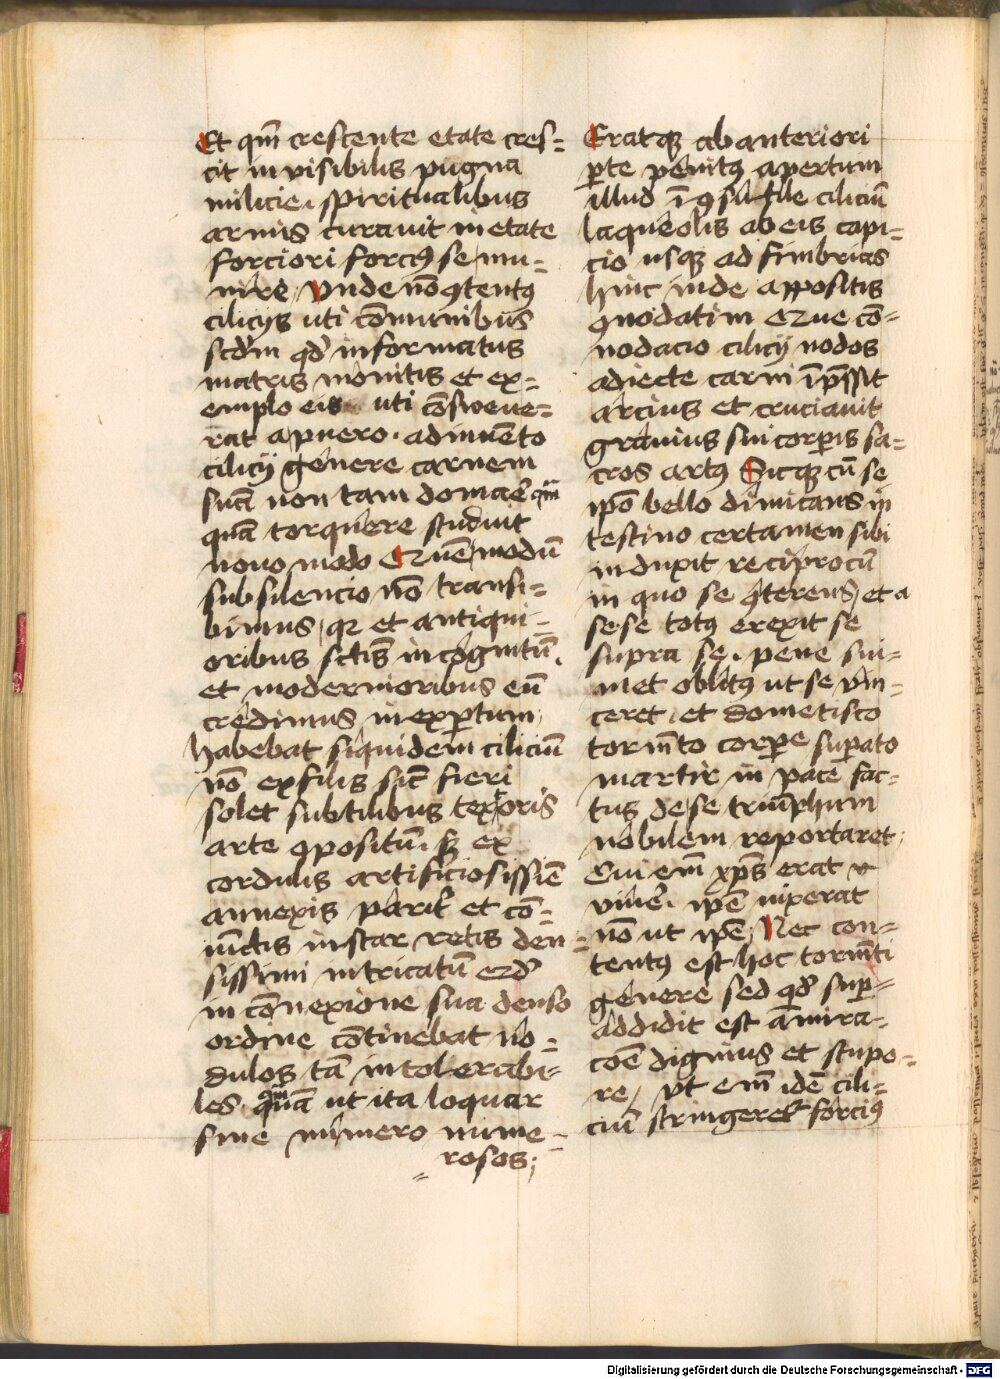 Et qm̄ crescente etate cres=
cit invisibilis pugna
milicie. spiritualibus
armis curavit in etate
forciori forciꝰ se mu=
nire, Vnde nō ꝯtentꝰ
ciliciis uti cōmunibus
scdm̄ qd̓ informatus
matris monitis et ex=
emplo eis uti cōsweue=
rat a puero. adinuēto
cilicij genere carnem
suā non tam domar̓ qm̄
quā torquere studuit
nouo modo Quē modū
sub silencio nō transi=
bimus, qꝛ et antiqui-
oribus sctīs incognitū.
et modernioribus eū
credimus inexꝑtum,
habebat siquidem ciliciū
nō ex filis sic̄ fieri
solet subtilibus textoris
arte ꝯpositū. sꝫ ex
cordulis artificiosissīē
annexis parit̓ et cō=
iūctis instar retis den=
sissimi intricatū qd̓
in cōnexione sua denso
ordine cōtinebat no=
dulos tā intolerabi=
les quā ut ita loquar
sine numero nume=
rosos;
Eratqꝫ ab anteriori
ꝑte penitꝰ apertum
illud ī ꝯsutile ciliciū
laqueolis ab eis capi=
cio usqꝫ ad fimbrias
hinc inde appositis
ꝯnodatim Que cō-
nodacio cilicij nodos
adiecte carni īp̄ssit
arcius et cruciauit
grauius sui corꝑis sa=
cros artꝰ Sicqꝫ cū se
ipō bello dimicans in
testino certamen sibi
induxit reciprocū
in quo se ꝯterens, et a
sese totꝰ erexit se
supra se. pene sui=
met oblitꝰ ut se vin=
ceret, et domestico
tormēto corꝑe suꝑato
martir in pace fac=
tus de se triūphum
nobilem reportaret,
Cui em̄ xp̄s erat
viuer̓. ipē vixerat
nō ut ipē, Nec con=
tentꝰ est hoc tormēti
genere sed qd̓ suꝑ=
addidit est āmira=
cōe dignius et stupo=
re, Vt em̄ idē cili=
ciū stringeret forciꝰ
Digitalisierung gefördert durch die Deutsche Forschungsgemeinschaft - DFG